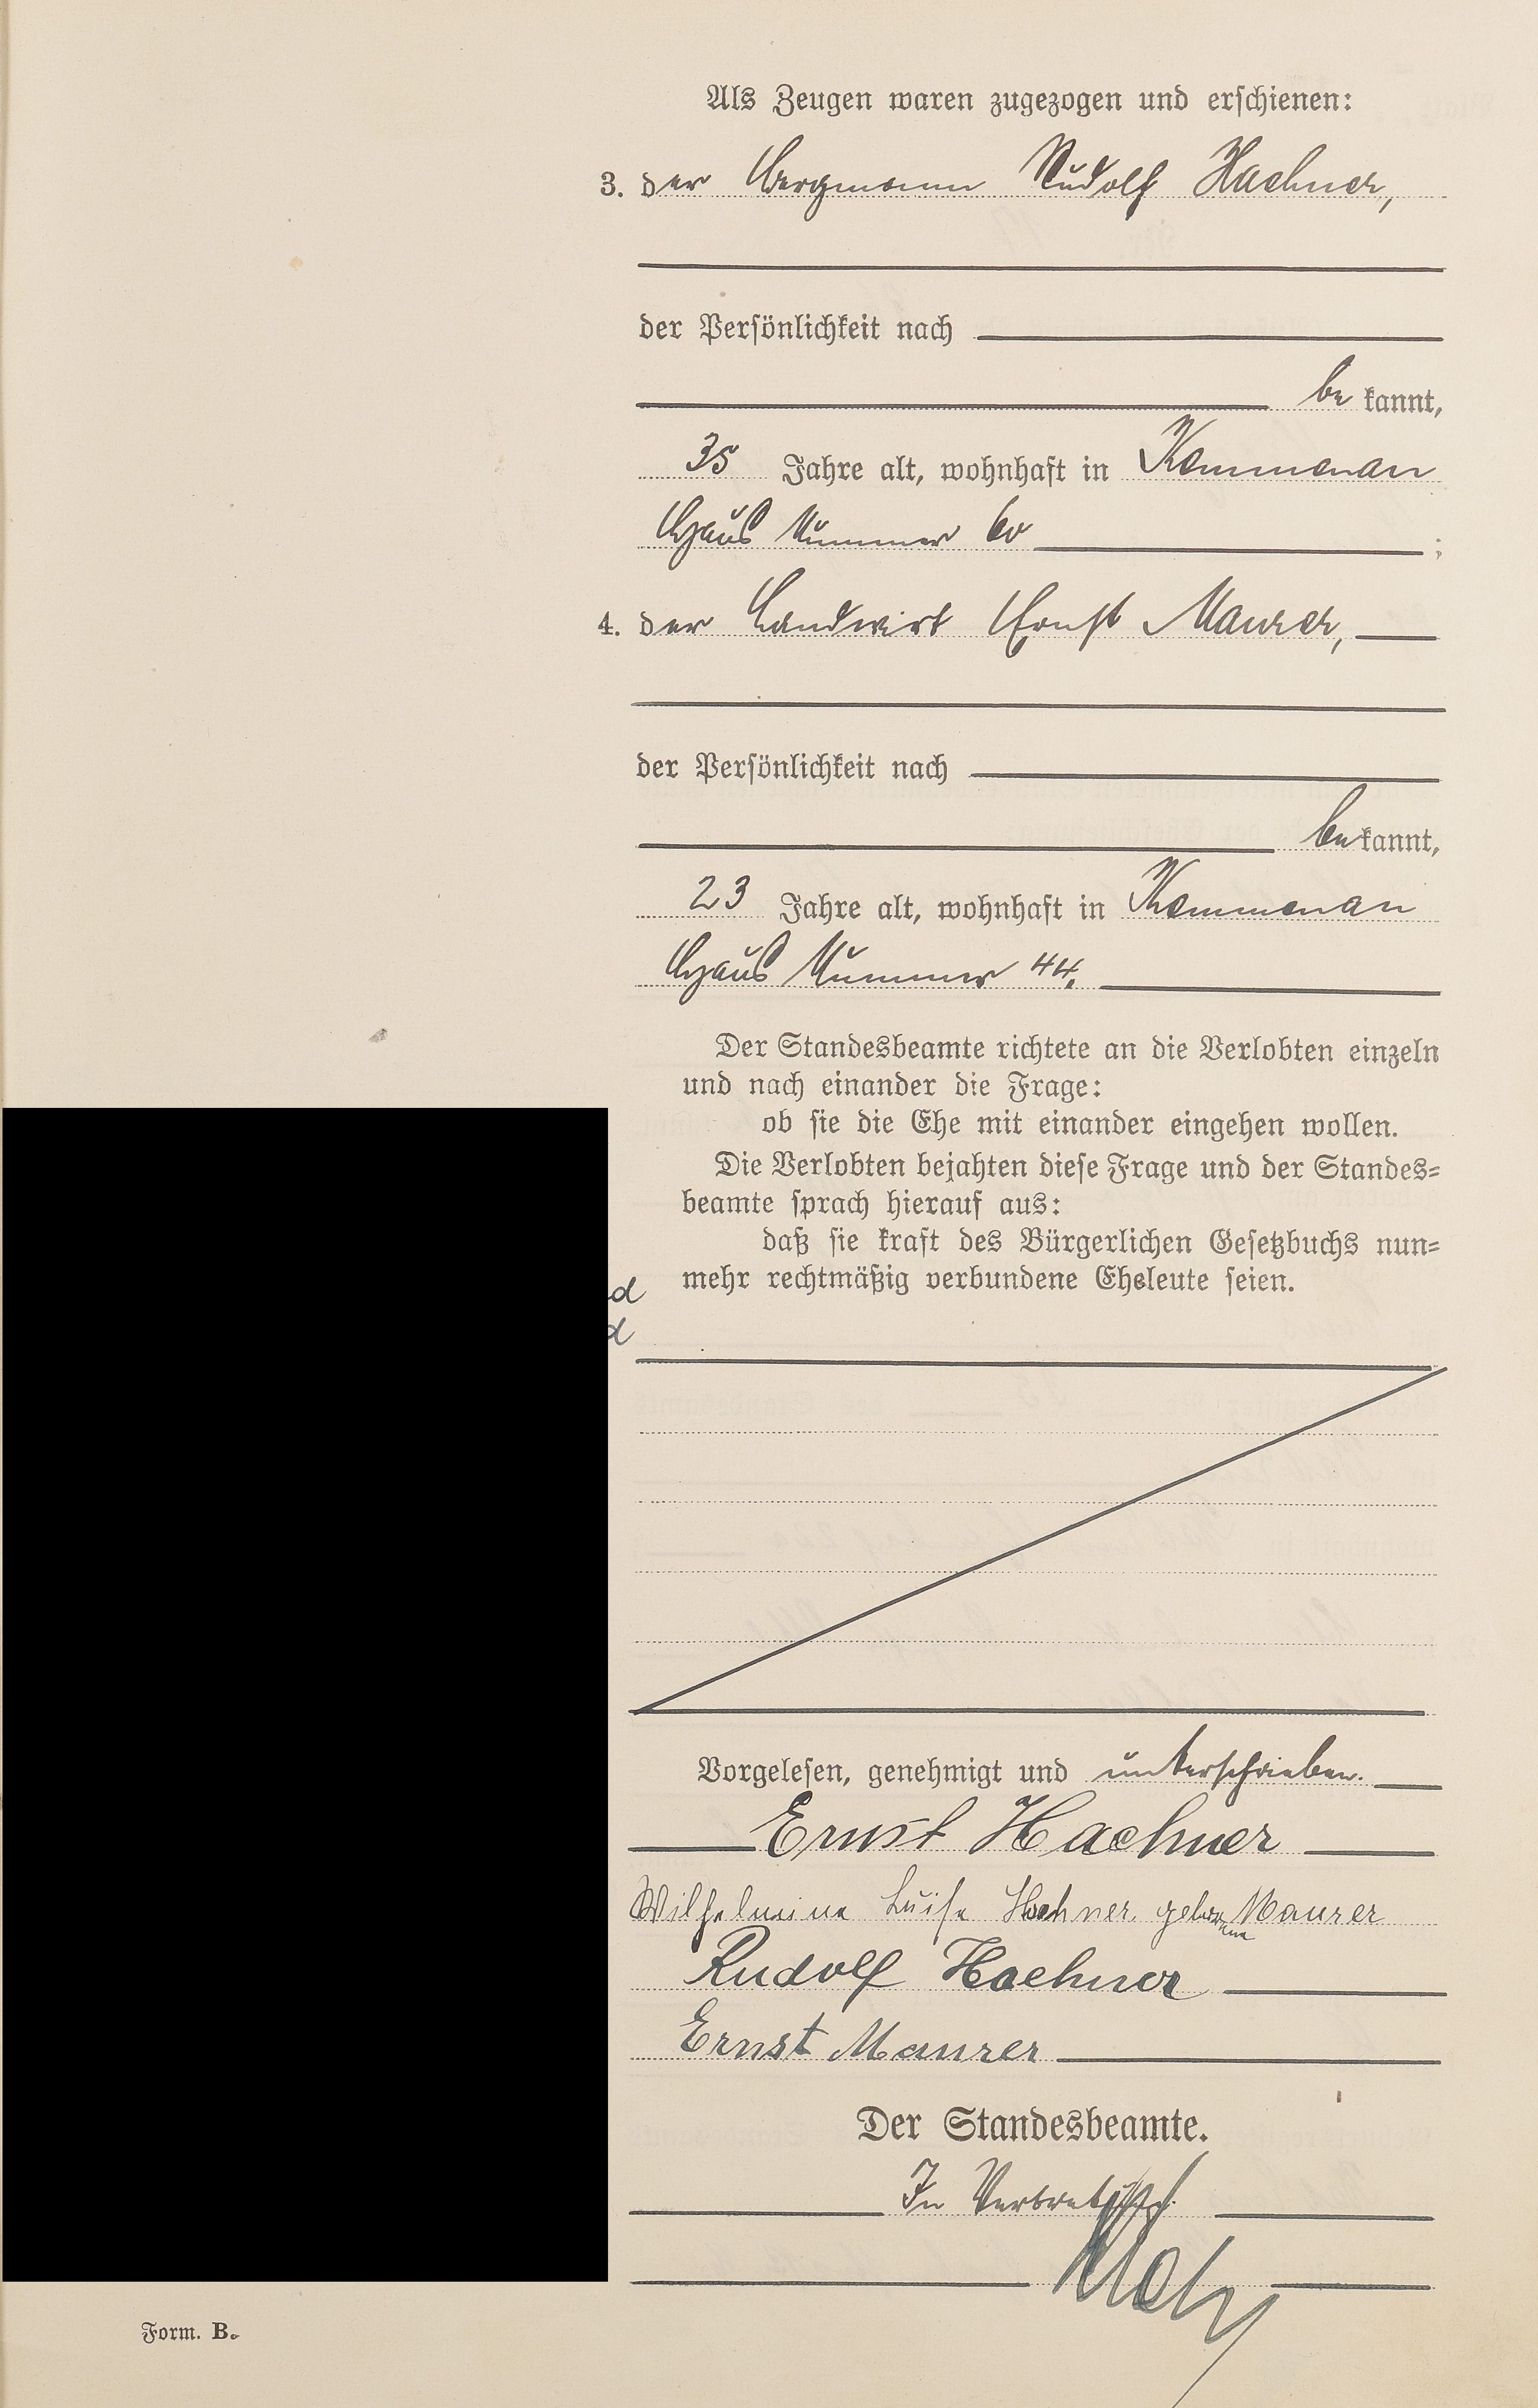 Als Zeugen waren zugezogen und erschienen:
3. der Bergmann Rudolf Haehner,
der Persönlichkeit nach
be kannt,
35 Jahre alt, wohnhaft in Kommenau
Haus Nummer 60 ;
4. der Landwirt Ernst Maurer,
der Persönlichkeit nach
be kannt,
23 Jahre alt, wohnhaft in Kommenau
Haus Nummer 44.
Der Standesbeamte richtete an die Verlobten einzeln
und nach einander die Frage:
ob sie die Ehe mit einander eingehen wollen.
Die Verlobten bejahten diese Frage und der Standes=
beamte sprach hierauf aus:
daß sie kraft des Bürgerlichen Gesetzbuchs nun=
mehr rechtmäßig verbundene Eheleute seien.
Vorgelesen, genehmigt und unterschrieben.
Ernst Haehner
Wilhelmine Luise Haehner geborene Maurer
Rudolf Haehner
Ernst Maurer
Der Standesbeamte.
In Vertretung.
Form. B.